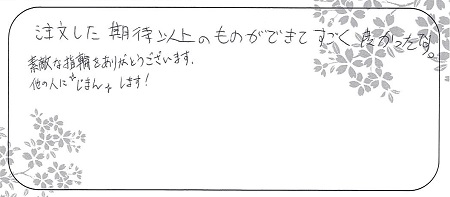 注文した期待以上のものができてすごく良かったです。
素敵な指輪をありがとうございます。
他の人に"じまん"します!